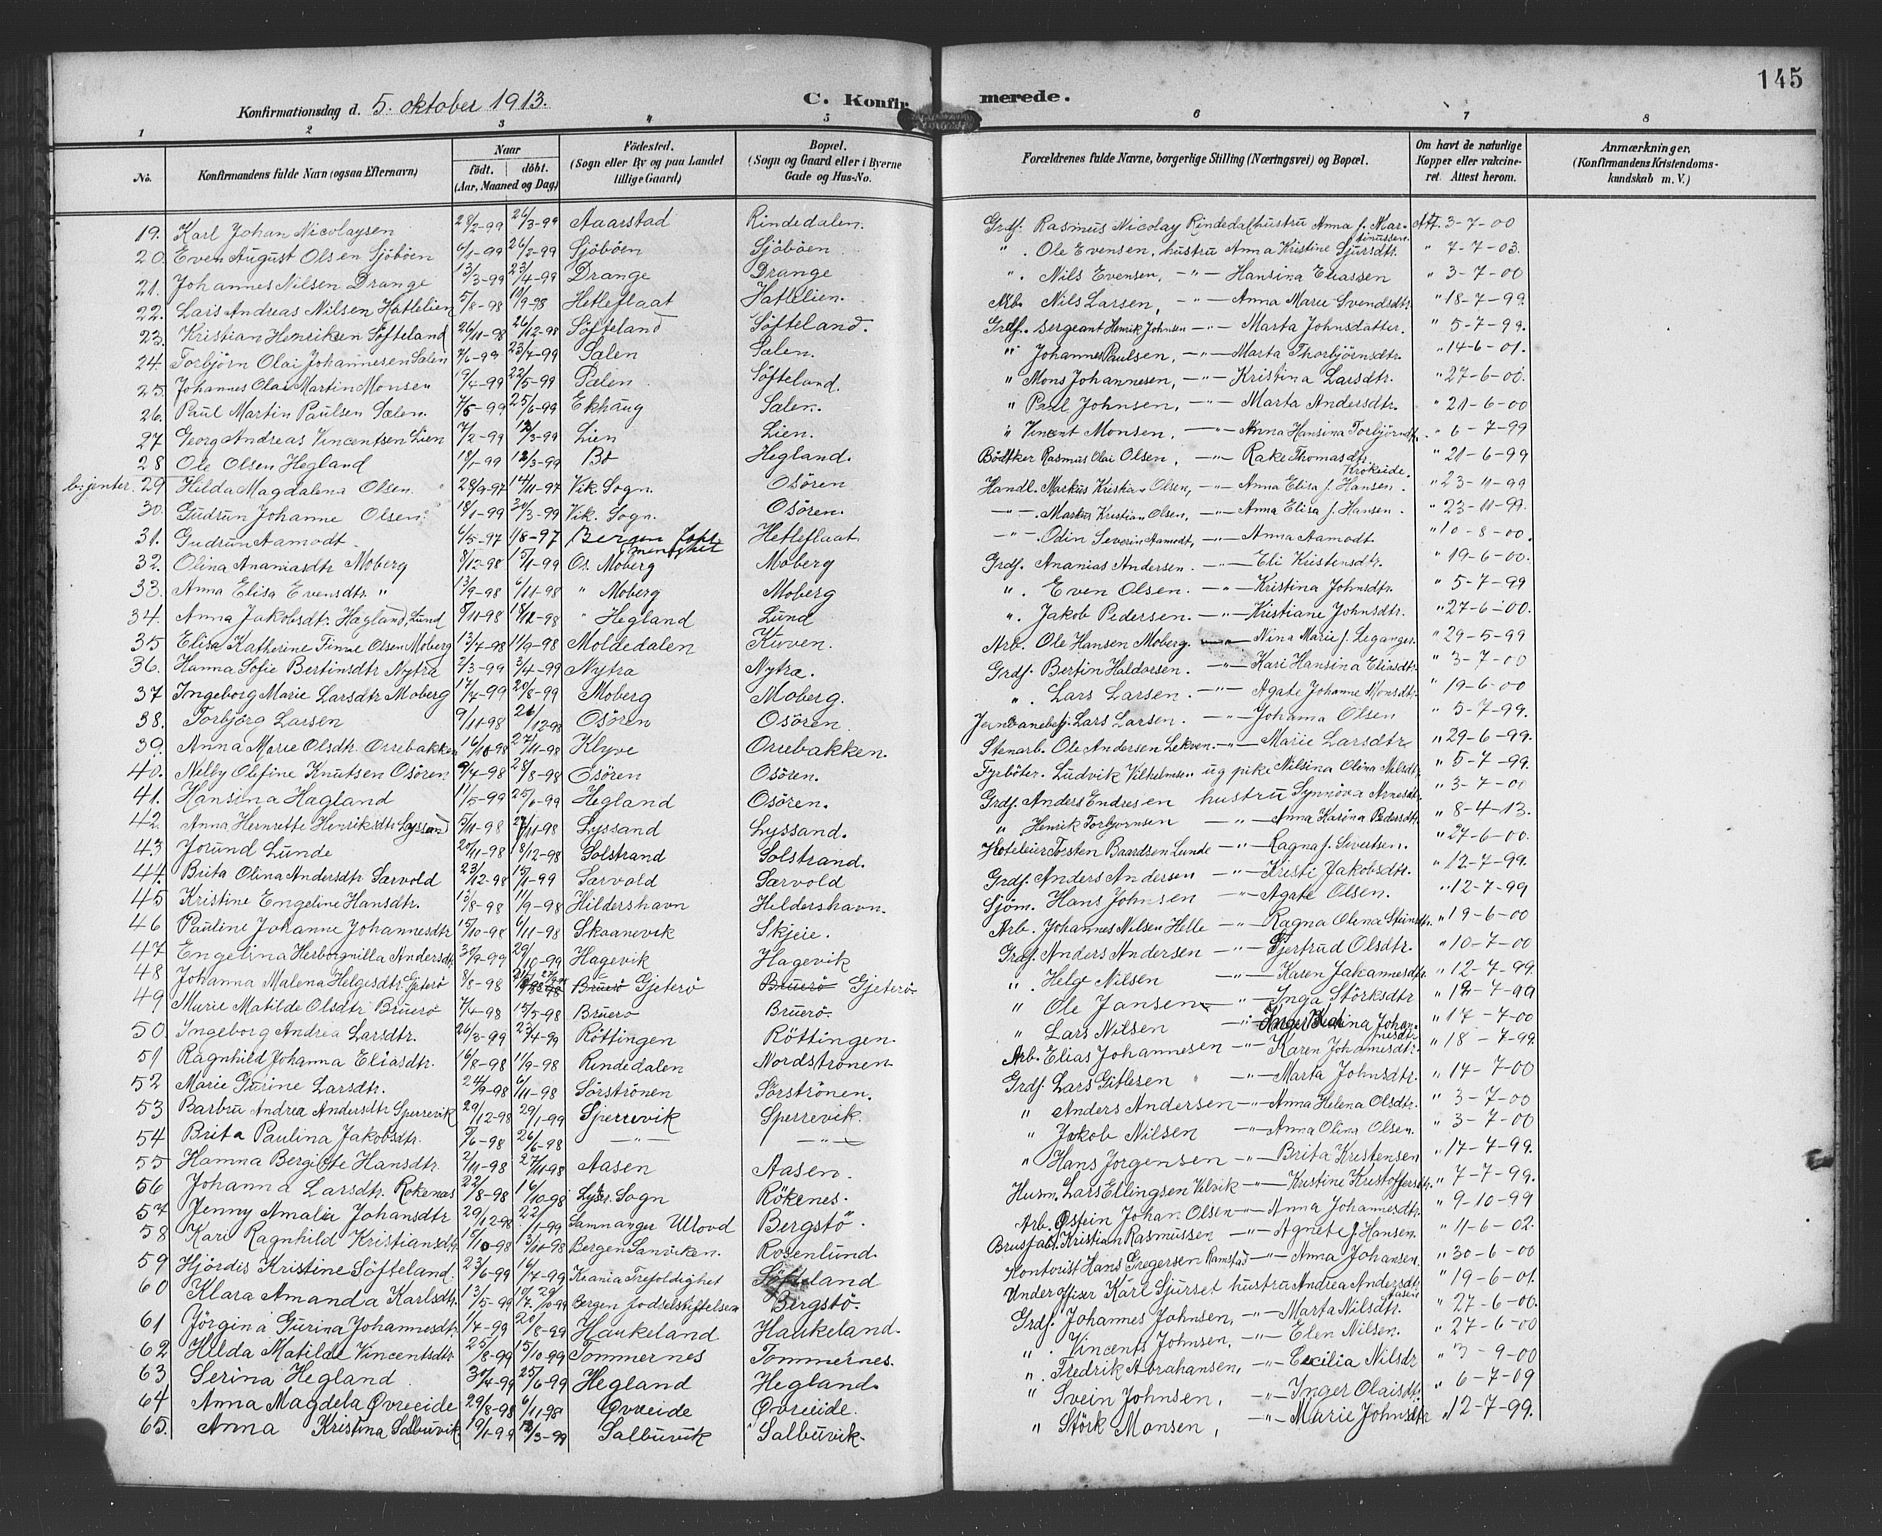 145
Konfirmationsdag d. 5. oktober 1913.
C. Konfir merede.
1 2 3 4 5 6 7 8
No. Konfirmandens fulde Navn (ogsaa Efternavn) Naar født. døbt. (Aar, Maaned og Dag) Fødested. (Sogn eller By og paa Landet tillige Gaard) Bopæl. (Sogn og Gaard eller i Byerne Gade og Hus-No. Forældrenes fulde Navne, borgerlige Stilling (Næringsvei) og Bopæl. Om havt de naturlige Kopper eller vakcineret. Attest herom. Anmærkninger, (Konfirmandens Kristendomskundskab m. V.)
19. Karl Johan Nicolaysen 28/2-99 26/3-99 Aarstad Rindedalen. Grdf. Rasmus Nicolay Rindedal hustru Anna f. Martinussen. Att. 3-7-00
20. Even August Olsen Sjöböen 6/1-99 26/2-99 Sjöböen Sjöböen ". Ole Evensen, hustru Anna Kristine Sjursdtr. " 7-7-03.
21. Johannes Nilsen Drange 13/3-99 23/4-99 Drange Drange ". Nils Evensen, -"- Hansina Eliassen " 3-7-00
22. Lars Andreas Nilsen Hattelien 5/8-98 11/9-98 Hetleflaat Hattelien. Arb. Nils Larsen, -"- Anna Marie Svendsdtr. " 18-7-99.
23. Kristian Henriksen Söfteland 26/11-98 26/12-98 Söfteland Söfteland. Grdf. Sergeant Henrik Johnsen -"- Marta Johnsdatter. " 5-7-99.
24. Torbjörn Olai Johannesen Salen 7/6-99 23/7-99 Salen Salen. " Johannes Paulsen, -"- Marta Thorbjörnsdtr. " 14-6-01.
25. Johannes Olai Martin Monsen 19/4-99 22/5-99 Pælen Söfteland. " Mons Johannesen, -"- Kristina Larsdtr. " 27-6-00.
26. Paul Martin Paulsen Sælen. 7/5-99 25/6-99 Ekhaug Salen. " Paul Johnsen, -"- Marta Andersdtr. " 21-6-00
27. Georg Andreas Vincentsen Lien 7/2-99 12/3-99 Lien Lien. " Vincent Monsen. -"- Anna Hansina Torbjörndtr. " 6-7-99
28 Ole Olsen Hegland 18/1-99 12/3-99 Bö Hegland. Bödtker Rasmus Olai Olsen, -"- Rake Thomasdtr. Krokeide. " 21-6-99
b. jenter. 29 Hilda Magdalena Olsen. 28/9-97 14/11-97 Vik. Sogn. Osören Handl. Markus Kristian Olsen, -"- Anna Elisa f. Hansen. " 23-11-99
30. Gudrun Johanne Olsen. 18/1-99 30/3-99 Vik. Sogn. Osören. -"-. Markus Kristian Olsen, -"- Anna Elisa f. Hansen. " 23-11-99.
31. Gudrun Aamodt. 6/5-97 1/8-97 Bergen menighet Hetleflaat -"- Odin Severin Aamodt, -"- Anna Aamodt " 10-8-00.
32. Olina Ananiasdtr Moberg 8/12-98 15/1-99 Os. Moberg Moberg Grdf. Ananias Andersen. -"- Eli Kristensdtr. " 19-6-00.
33. Anna Elisa Evensdtr. " 13/9-98 6/11-98 " Moberg Moberg ". Even Olsen. -"- Kristina Johnsdtr. " 5-7-99
34. Anna Jakobsdtr. Hægland, Lund 8/11-98 18/12-98 " Hegland Lund ". Jakob Pedersen. -"- Kristiane Johnsdtr. " 27-6-00.
35 Elisa Katherine Finne Olsen Moberg 13/7-98 11/9-98 Moldedalen Kuven. Arb. Ole Hansen Moberg. -"- Nina Marie f. Leganger. " 29-5-99
36. Hanna Sofie Bertinsdtr Nytra 2/3-99 3/4-99 Nytra Nytra. Grdf. Bertin Haldorsen. -"- Kari Hansina Eliasdtr. " 3-7-00
37 Ingeborg Marie Larsdtr Moberg 17/4-99 20/8-99 Moberg Moberg. ". Lars Larsen. -"- Agate Johanne Monsdtr. " 19-6-00
38. Torbjörg Larsen 9/11-98 26/12-98 Osören Osören. Lars Larsen. -"- Johanna Olsen " 5-7-99.
39. Anna Marie Olsdtr. Orrebakken 16/10-98 27/11-98 Klyve Orrebakken. Stenarb. Ole Andersen Lekven. -"- Marie Larsdtr " 29-6-99.
40. Nelby Olefine Knutsen Osören 9/4-98 28/8-98 Osören Osören. Fyrböter. Ludvik Vilhelmsen ug pike Nilsina Olina Nilsdtr " 5-7-99.
41. Hansina Hagland 11/5-99 25/6-99 Hegland Osören. Grdf. Anders Endresen hustru Synnöva Arnesdtr " 3-7-00
42. Anna Henrette Henriksdtr Lyssand 5/11-98 27/11-98 Lyssand Lyssand. " Henrik Torbjornsen -"- Anna Karina Pedersdtr. " 8-4-13.
43. Jorund Lunde 20/11-98 18/12-98 Solstrand Solstrand. Hoteleier Torsten Baardsen Lunde -"- Ragna f. Sivertsen. " 27-6-00.
44. Brita Olina Andersdtr Særvold 23/12-98 15/1-99 Særvold Særvold Grdf. Anders Andersen -"- Kristi Jakobsdtr. " 12-7-99.
45 Kristine Engeline Hansdtr. 13/8-98 11/9-98 Hildershavn Hildershavn. Sjöm. Hans Johnsen -"- Agate Olsen. " 12-7-99
46 Pauline Johanne Johannesdtr 15/10-98 6/11-98 Skaanevik Skjeie. Arb. Johannes Nilsen Helle -"- Ragna Olena Steinsdtr " 19-6-00
47 Engelina Herborgvilla Andersdtr. 30/9-99 29/10-99 Hagevik Hagevik Grdf. Anders Andersen -"- Gjertrud Olsdtr. " 10-7-00
48 Johanna Malena Helgesdtr. Gjeterö 8/8-98 Bruerö Gjeterö Bruerö Gjeterö. " Helge Nilsen -"- Karen Johannesdtr " 12-7-99.
49 Marie Matilde Olsdtr Bruerö 7/4-98 15/5-98 Bruerö Bruerö. " Ole Jansen -"- Inga Störksdtr " 12-7-99
50. Ingeborg Andrea Larsdtr. 26/3-99 23/4-99 Röttingen Röttingen. " Lars Nilsen -"- Johannesdtr " 17-7-00
51 Ragnhild Johanna Eliasdtr. 16/8-98 11/9-98 Rindedalen Nordströnen. Arb. Elias Johannesen -"- Karen Johannesdtr. " 18-7-99.
52 Marie Gurine Larsdtr. 24/9-98 6/11-98 Sörströnen Sörströnen. Grdf. Lars Gitlesen -"- Marta Johnsdtr. " 14-7-00
53 Barbru Andrea Andersdtr Sperrevik 29/12-98 29/1-99 Sperrevik Sperrevik. " Anders Andersen -"- Anna Helena Olsdtr. " 3-7-00
54 Brita Paulina Jakobsdtr. 5/6-98 26/6-98 -"- -"- " Jakob Nilsen -"- Anna Olina Olsen. " 3-7-00
55 Hanna Bergitte Hansdtr. 2/11-98 27/11-98 Aasen Aasen. " Hans Jorgensen -"- Brita Kristensen " 17-7-99.
56 Johanna Larsdtr. Rökenes 22/8-98 16/10-98 Lyse. Sogn Rökenes. Husm. Lars Ellingsen Vilvik -"- Kristine Kristoffersdtr. " 7-7-99.
57 Jenny Amalia Johansdtr 29/12-98 22/1-99 Samnanger Utlovd Bergstö. Arb. Östein Johan Olsen -"- Anna Johannesdtr. " 9-10-99
58 Kari Ragnhild Kristiansdtr. 15/10-98 13/11-98 Bergen Sanviken. Rosenlund. Brusfab. Kristian Rasmussen -"- Agnete f. Hansen. " 11-6-02.
59 Hjördis Kristine Söfteland. 23/6-99 16/7-99 Kristiania Trefoldighet Söfteland Kontorist Hans Gregersen Ramstad -"- Anna Johansen. " 30-6-00
60 Klara Amanda Karlsdtr. 13/5-99 Bergen Födselstiftelsen Bergstö. Underofiser Karl Sjurset hustru Andrea Andersdtr Aasen " 19-6-01.
61 Jörgina Gurina Johannesdtr 11/7-99 20/8-99 Haukeland Haukeland. Grdf. Johannes Johnsen, -"- Marta Nilsdtr. " 27-6-00.
62 Hilda Matilde Vincentsdtr. 25/8-99 15/10-99 Tommernes Tommernes. ". Vincents Johnsen, -"- Elen Nilsen. " 27-6-00
63 Serina Hegland. 30/4-99 25/6-99 Hegland Hegland. ". Fredrik Abrahansen, -"- Cecilia Nilsdr " 3-9-00
64 Anna Magdela Øvreeide 29/8-98 6/11-98 Øvreeide Øvreeide. " Svein Johnsen, -"- Inger Olaisdtr " 6-7-09
65. Anna Kristina Salbuvik 19/1-99 12/3-99 Salbuvik Salbuvik. " Störk Monsen, -"- Marie Johnsdtr " 12-7-99.